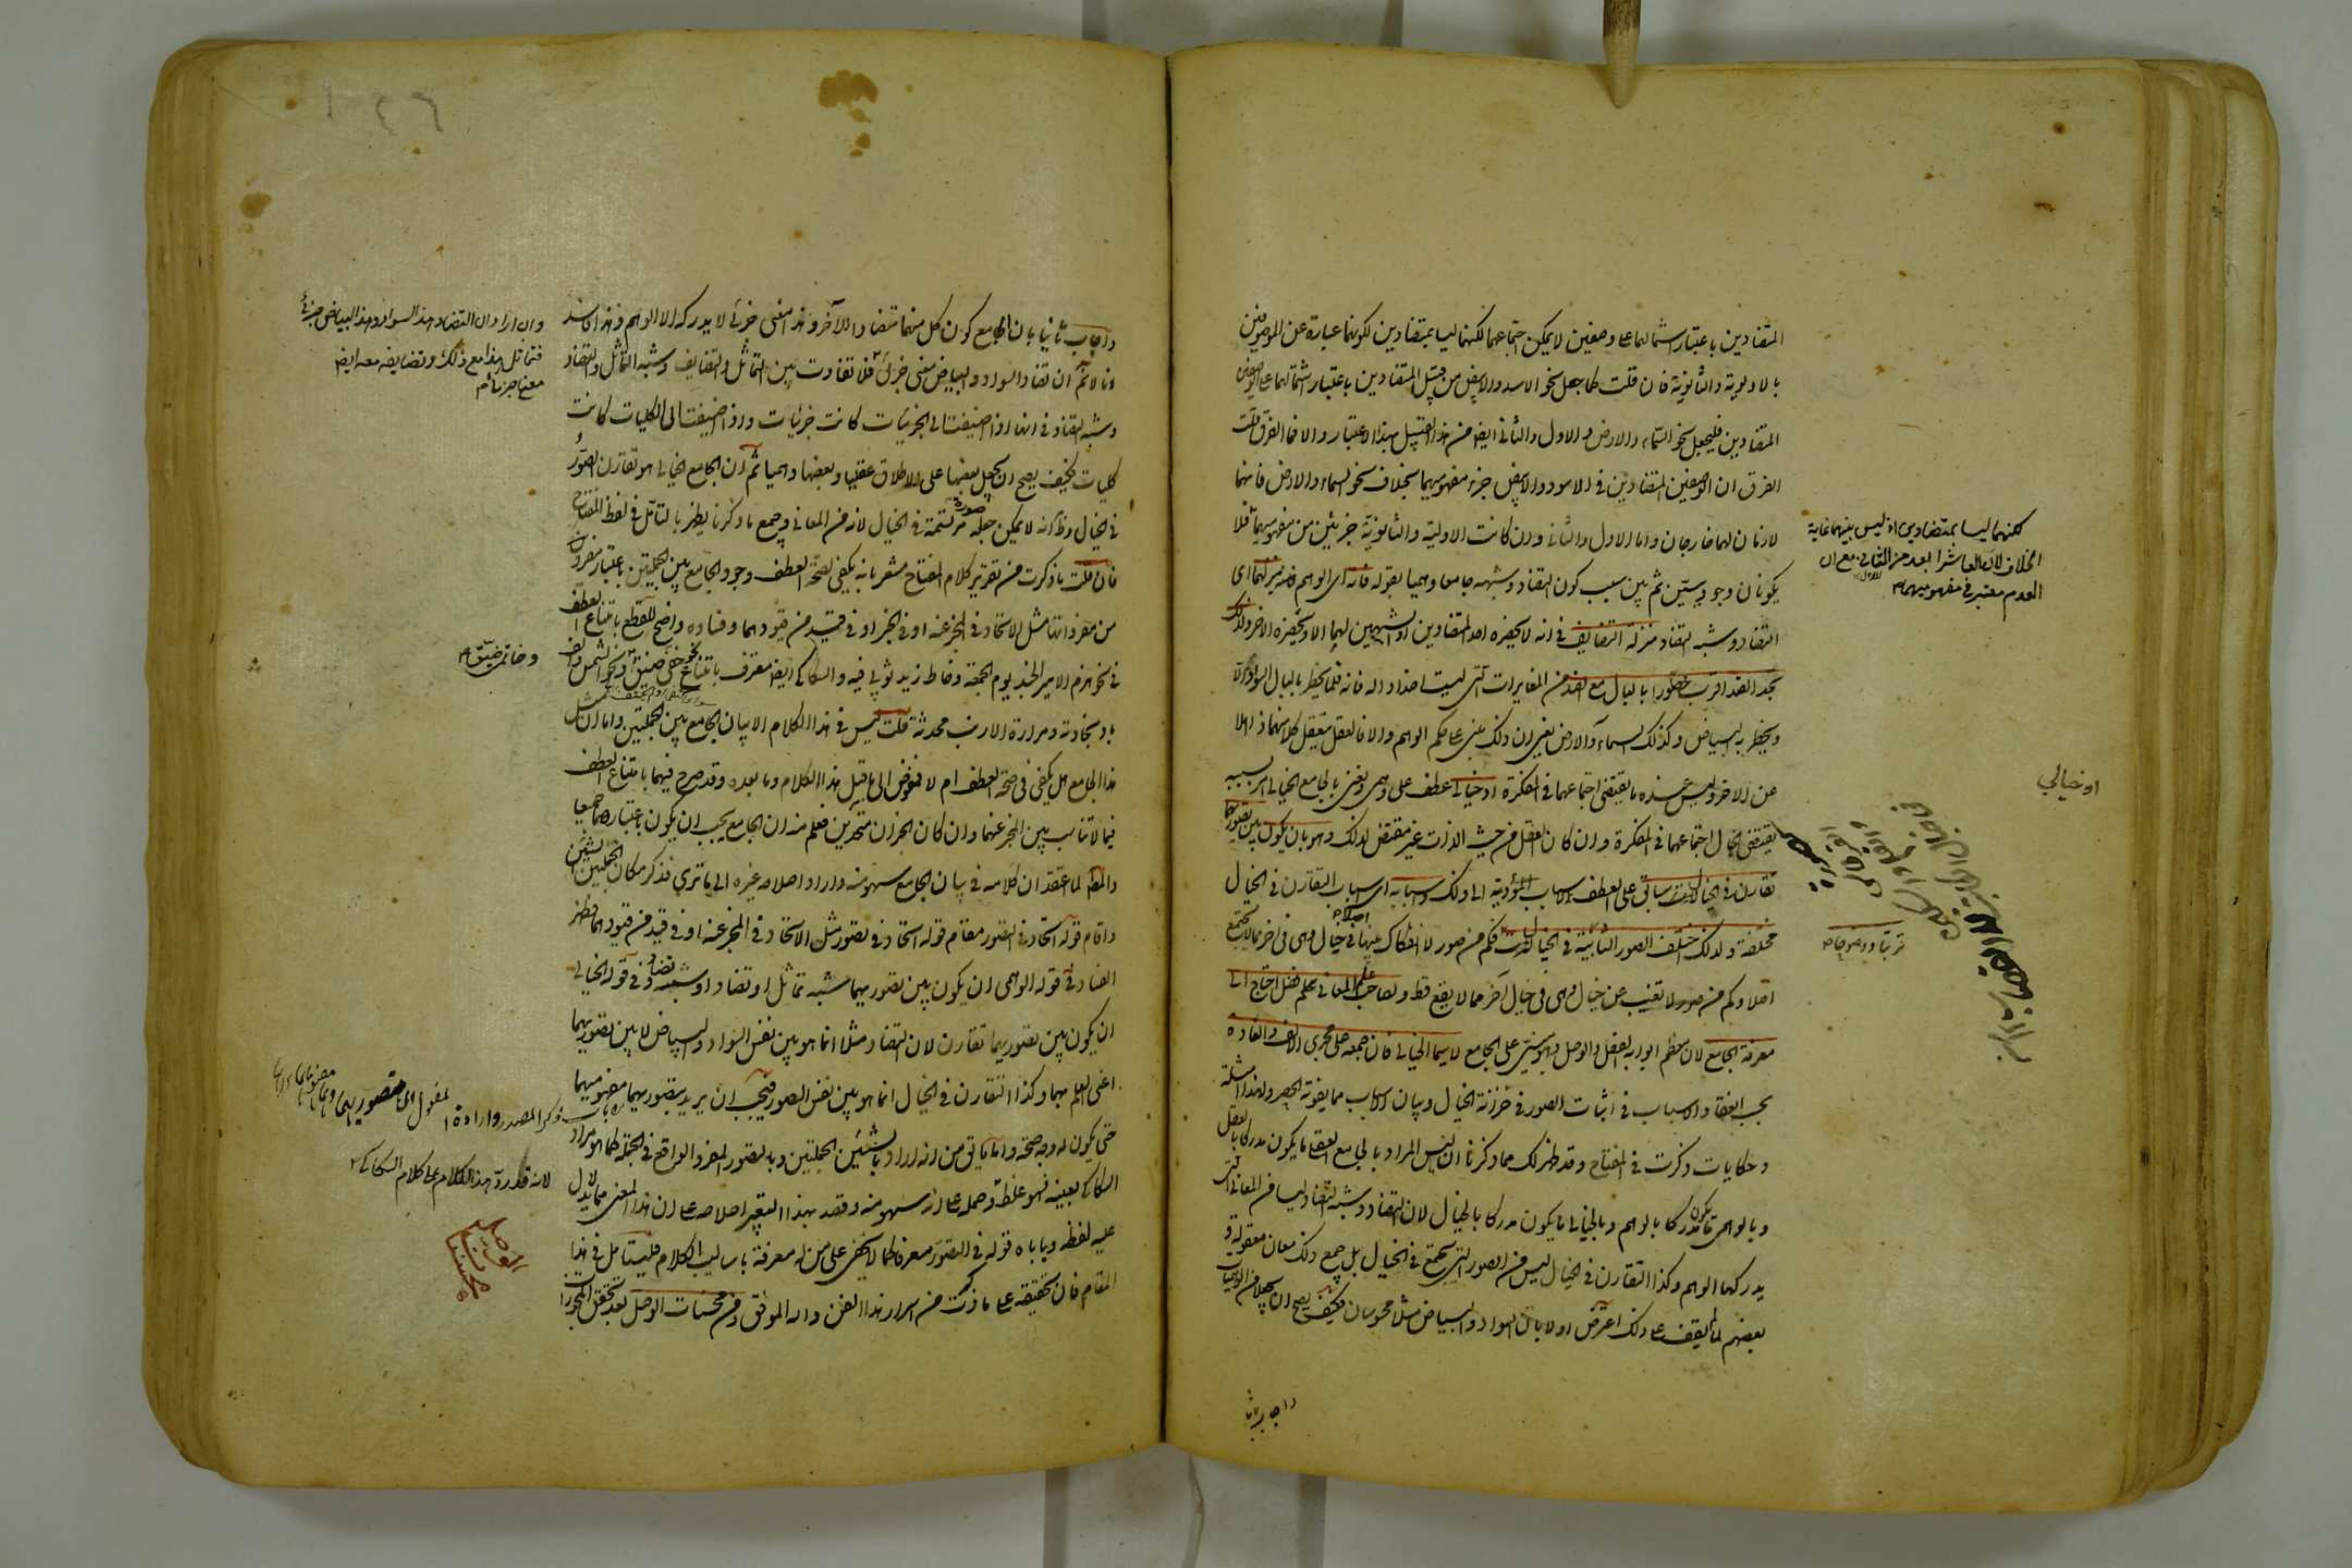 المتضادين باعتبار اشتمالهما على وصفين لا يمكن اجتماعهما لكنهما ليسا بمتضادين لكونهما عبارة عن الموصوفين
بالاولوية والثانوية فان قلت كما جعل نحو الاسود والابيض من قبيل المتضادين باعتبار اشتمالهما على الوصفين
المتضادين فليجعل نحو السماء والارض والاول والثاني ايضا من هذا القبيل بهذا الاعتبار والا فما الفرق قلت
الفرق ان الوصفين المتضادين في الاسود والابيض جزء مفهوميهما بخلاف نحو السماء والارض فانهما
لازمان لهما خارجان واما الاول والثاني وان كانت الاولية والثانوية جزئين من مفهوميهما فلا
يكونان وجوديتين ثم بين سبب كون التضاد وشبهه جامعا وهميا بقوله فانه اى الوهم ينزلهما اى
التضاد وشبه التضاد منزلة التضايف في انه لا يحضره احد المتضادين او الشبيهين بهما الا ويحضره الاخر ولذلك
تجد الضد اقرب خطورا بالبال مع الضد من المغايرات التى ليست اضدادا له فانه قلما يخطر بالبال السواد الا
ويخطر به البياض وكذلك السماء والارض يعنى ان ذلك مبنى على حكم الوهم والا فالعقل يتعقل كلا منهما ذاهلا
عن الاخر وليس عنده ما يقتضى اجتماعهما في المفكرة او خيالي عطف على وهمى ونعنى بالجامع الخيالى امرا بسببه
يقتضى الخيال اجتماعهما في المفكرة وان كان العقل من حيث الذات غير مقتض لذلك وهو بان يكون بين تصوريهما
تقارن في الخيال سابق على العطف لاسباب مؤدية الى ذلك واسبابه اى اسباب التقارن في الخيال
مختلفة ولذلك اختلف الصور الثابتة في الخيالات فكم من صور لا انفكاك بينها في خيال وهى في اخر مما لا يجتمع
اصلا وكم من صور لا تغيب عن خيال وهى في خيال آخر مما لا يقع قط ولصاحب علم المعاني فضل احتياج الى
معرفة الجامع لان معظم ابوابه الفصل والوصل وهو مبنى على الجامع لا سيما الخيالى فان جمعه على مجرى الالف والعادة
بحسب انعقاد الاسباب في اثبات الصور في خزانة الخيال وبيان الاسباب مما يفوته الحصر ولهذا امثلة
وحكايات ذكرت في المفتاح وقد ظهر لك مما ذكرنا ان ليس المراد بالجامع العقلى ما يكون مدركا بالعقل
وبالوهمى ما يكون مدركا بالوهم وبالخيالى ما يكون مدركا بالخيال لان التضاد وشبه التضاد ليسا من المعاني التى
يدركها الوهم وكذا التقارن في الخيال ليس من الصور التى تجتمع في الخيال بل جميع ذلك معان معقولة و
بعضهم لما لم يقف على ذلك اعترض اولا بان السواد والبياض مثلا محسوسان فكيف يصح ان يجعلا من الوهميات
واجاب ثانيا
لكنهما ليسا بمتضادين اذ ليس بينهما غاية
الخلاف لان العاشر ابعد من الثاني مع ان
العدم معتبر في مفهوميهما
او خيالي
ترتبا ووضوحا
واجاب ثانيا بان الجامع كون كل منهما متضادا للآخر وهذا معنى جزئى لا يدركه الا الوهم وهذا فاسد
فانا لا نم ان تضاد السواد والبياض معنى جزئى فلا تفاوت بين التماثل والتضايف وشبه التماثل والتضاد
وشبه التضاد في انها اذا اضيفت الى الجزئيات كانت جزئيات واذا اضيفت الى الكليات كانت
كليات فكيف يصح ان يجعل بعضها على الاطلاق عقليا وبعضها وهميا ثم ان الجامع الخيالى هو تقارن الصور
في الخيال وظ انه لا يمكن جعله صورة مرتسمة في الخيال لانه من المعاني وجميع ما ذكرنا يظهر بالتأمل في لفظ المفتاح
فان قلت ما ذكرت من تقرير كلام المفتاح مشعر بانه يكفى لصحة العطف وجود الجامع بين الجملتين باعتبار مفرد
من مفرداتهما مثل الاتحاد في المخبر عنه او في الخبر او في قيد من قيودهما وفساده واضح للقطع بامتناع العطف
في نحو هزم الامير الجند يوم الجمعة وخاط زيد ثوبى فيه والسكاكى ايضا معترف بامتناع نحو خفى ضيق ونحو الشمس والف
باذنجانة ومرارة الارنب محدثة قلت ليس في هذا الكلام الا بيان الجامع بين الجملتين واما ان مثل
هذا الجامع هل يكفى في صحة العطف ام لا فمفوض الى ما قبل هذا الكلام وما بعده وقد صرح فيهما بامتناع العطف
فيما لا تناسب بين المخبر عنهما وان كان الخبران متحدين فعلم منه ان الجامع يجب ان يكون باعتبارهما جميعا
والمص لما اعتقد ان كلامه في بيان الجامع سهو منه واراد اصلاحه غيره الى ما ترى فذكر مكان الجملتين الشيئين
واقام قوله اتحاد في التصور مقام قوله اتحاد في تصور مثل الاتحاد في المخبر عنه او في قيد من قيودهما فظهر
الفساد في قوله الوهمى ان يكون بين تصوريهما شبه تماثل او تضاد او شبه تضاد وفي قوله الخيالى
ان يكون بين تصوريهما تقارن لان التضاد مثلا انما هو بين نفس السواد والبياض لا بين تصوريهما
اعنى العلم بهما وكذا التقارن في الخيال انما هو بين نفس الصور فيجب ان يريد بتصوريهما مفهوميهما
حتى يكون له وجه صحة واما ما يق من انه اراد بالشيئين الجملتين وبالتصور المفرد الواقع في الجملة كما هو مراد
السكاكى بعينه فهو غلط وحمله على انه سهو منه وقصد بهذا التغيير اصلاحه على ان هذا المعنى مما لا يدل
عليه لفظه ويأباه قوله في التصور معرفا كما لا يخفى على من له معرفة باساليب الكلام فليتامل في هذا
المقام فان تحقيقه على ما ذكرت من اسرار هذا الفن والله الموفق ومن محسنات الوصل بعد تحقق المجوزات
وان اراد ان التضاد هذا السواد وهذا البياض جزئى
فتماثل هذا مع ذلك وتضايفه معه ايضا
معنى جزئى
وخاتمى ضيق
لانه قد رد هذا الكلام على كلام السكاكى
محسنات الوصل